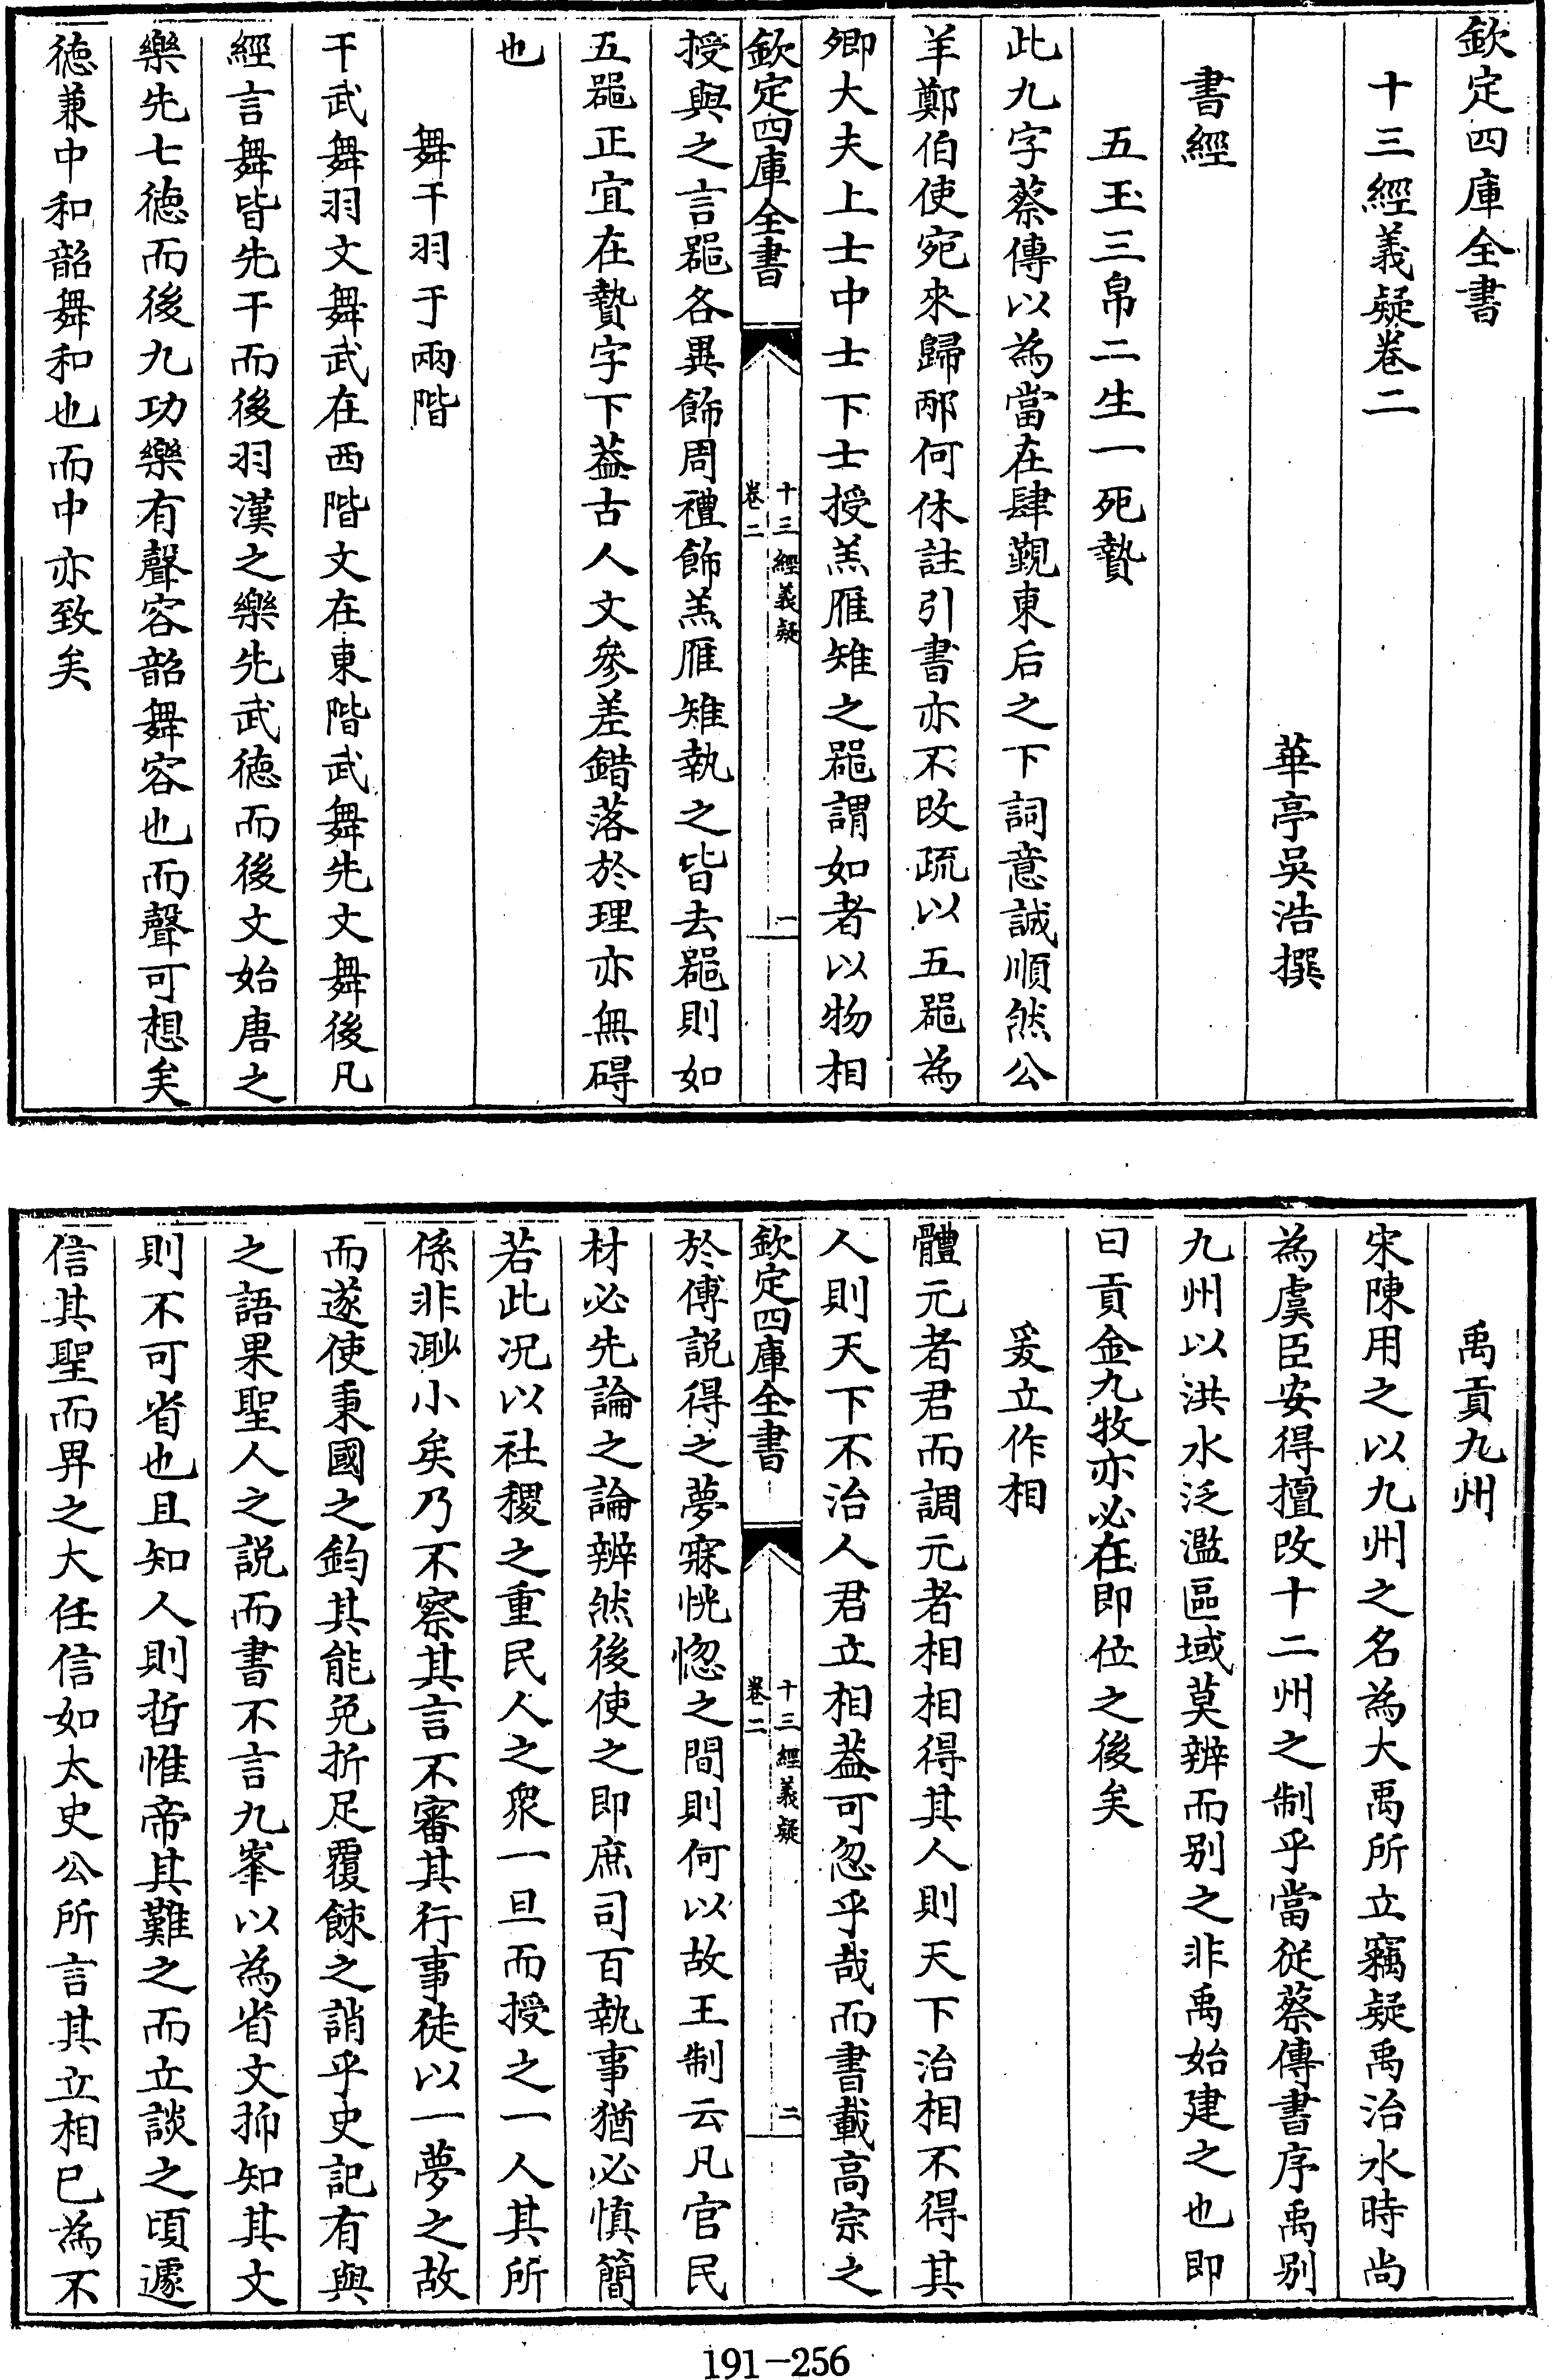 欽定四庫全書
十三經義疑卷二
華亭吳浩撰
書經
五玉三帛二生一死贄
此九字蔡傳以為當在肆覲東后之下詞意誠順然公
羊鄭伯使宛來歸邴何休註引書亦不改疏以五噐為
卿大夫上士中士下士授羔雁雉之噐謂如者以物相
欽定四庫全書
十三經義疑
卷二
一
授與之言噐各異飾周禮飾羔雁雉執之皆去噐則如
五噐正宜在贄字下葢古人文參差錯落於理亦無碍
也
舞干羽于兩階
干武舞羽文舞武在西階文在東階武舞先文舞後凡
經言舞皆先干而後羽漢之樂先武徳而後文始唐之
樂先七徳而後九功樂有聲容韶舞容也而聲可想矣
徳兼中和韶舞和也而中亦致矣
禹貢九州
宋陳用之以九州之名為大禹所立竊疑禹治水時尚
為虞臣安得擅改十二州之制乎當従蔡傳書序禹别
九州以洪水泛濫區域莫辨而别之非禹始建之也即
曰貢金九牧亦必在即位之後矣
爰立作相
體元者君而調元者相相得其人則天下治相不得其
人則天下不治人君立相葢可忽乎哉而書載高宗之
欽定四庫全書
十三經義疑
卷二
二
於傅說得之夢寐恍惚之間則何以故王制云凡官民
材必先論之論辨然後使之即庶司百執事猶必慎簡
若此况以社稷之重民人之衆一旦而授之一人其所
係非渺小矣乃不察其言不審其行事徒以一夢之故
而遂使秉國之鈞其能免折足覆餗之誚乎史記有與
之語果聖人之説而書不言九峯以為省文抑知其文
則不可省也且知人則哲惟帝其難之而立談之頃遽
信其聖而畀之大任信如太史公所言其立相已為不
191-256